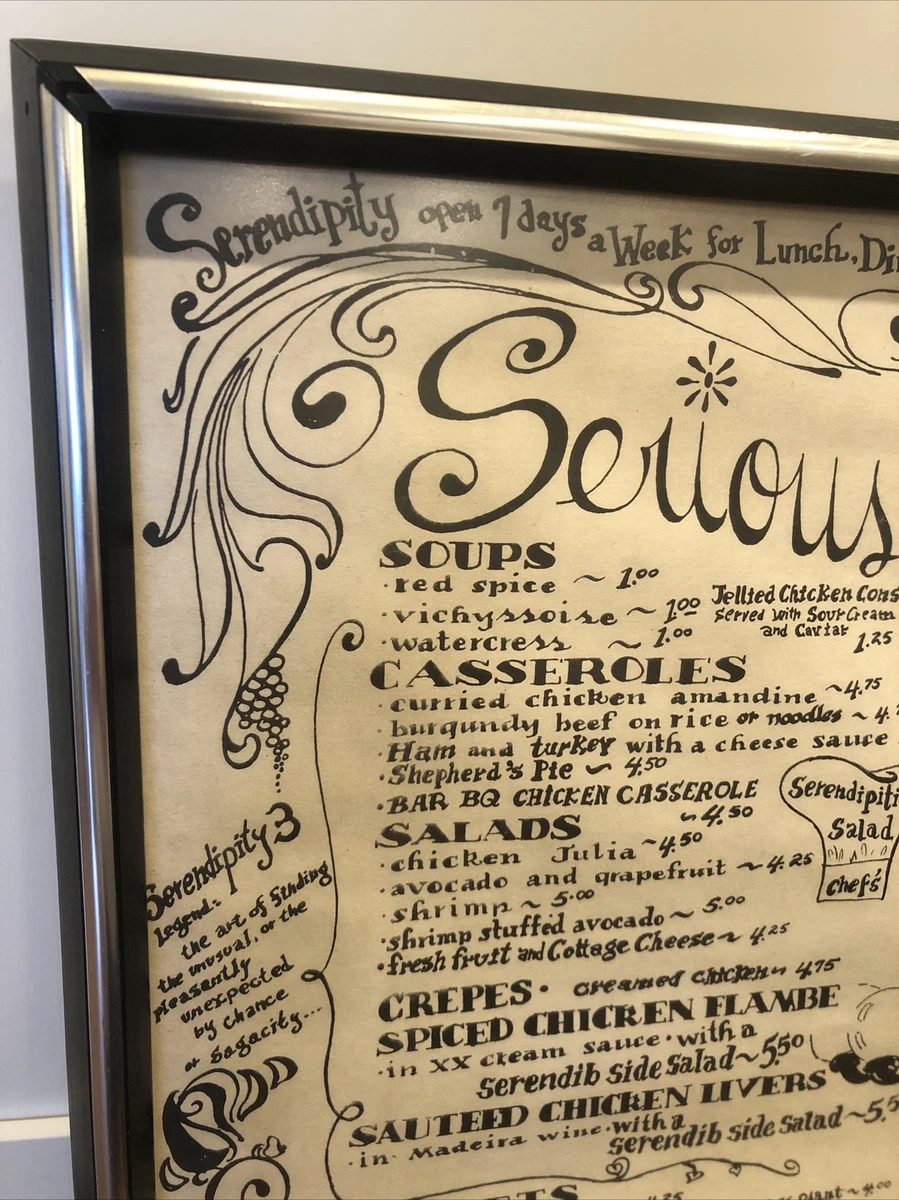 Serendipity open 7 days a Week for Lunch, Din
Serious
SOUPS
·red spice ~ 1.00
·vichyssoise ~ 1.00
·watercress ~ 1.00
Jellied Chicken Cons
served with Sour Cream
and Caviar 1.25
CASSEROLES
·curried chicken amandine ~4.75
·burgundy beef on rice or noodles ~ 4.
·Ham and turkey with a cheese sauce
·Shepherd's Pie ~ 4.50
·BAR BQ CHICKEN CASSEROLE
~4.50
Serendipiti
Salad
chefs'
SALADS
·chicken Julia ~4.50
·avocado and grapefruit ~4.25
·shrimp ~ 5.00
·shrimp stuffed avocado ~ 5.00
·fresh fruit and Cottage Cheese ~ 4.25
CREPES· creamed chicken ~ 4.75
SPICED CHICKEN FLAMBE
·in XX cream sauce·with a
Serendib Side Salad ~ 5.50
SAUTEED CHICKEN LIVERS
·in Madeira wine·with a
Serendib Side Salad ~5.5
Serendipity 3
Legend:
the art of finding
the unusual, or the
pleasantly
unexpected
by chance
or sagacity...